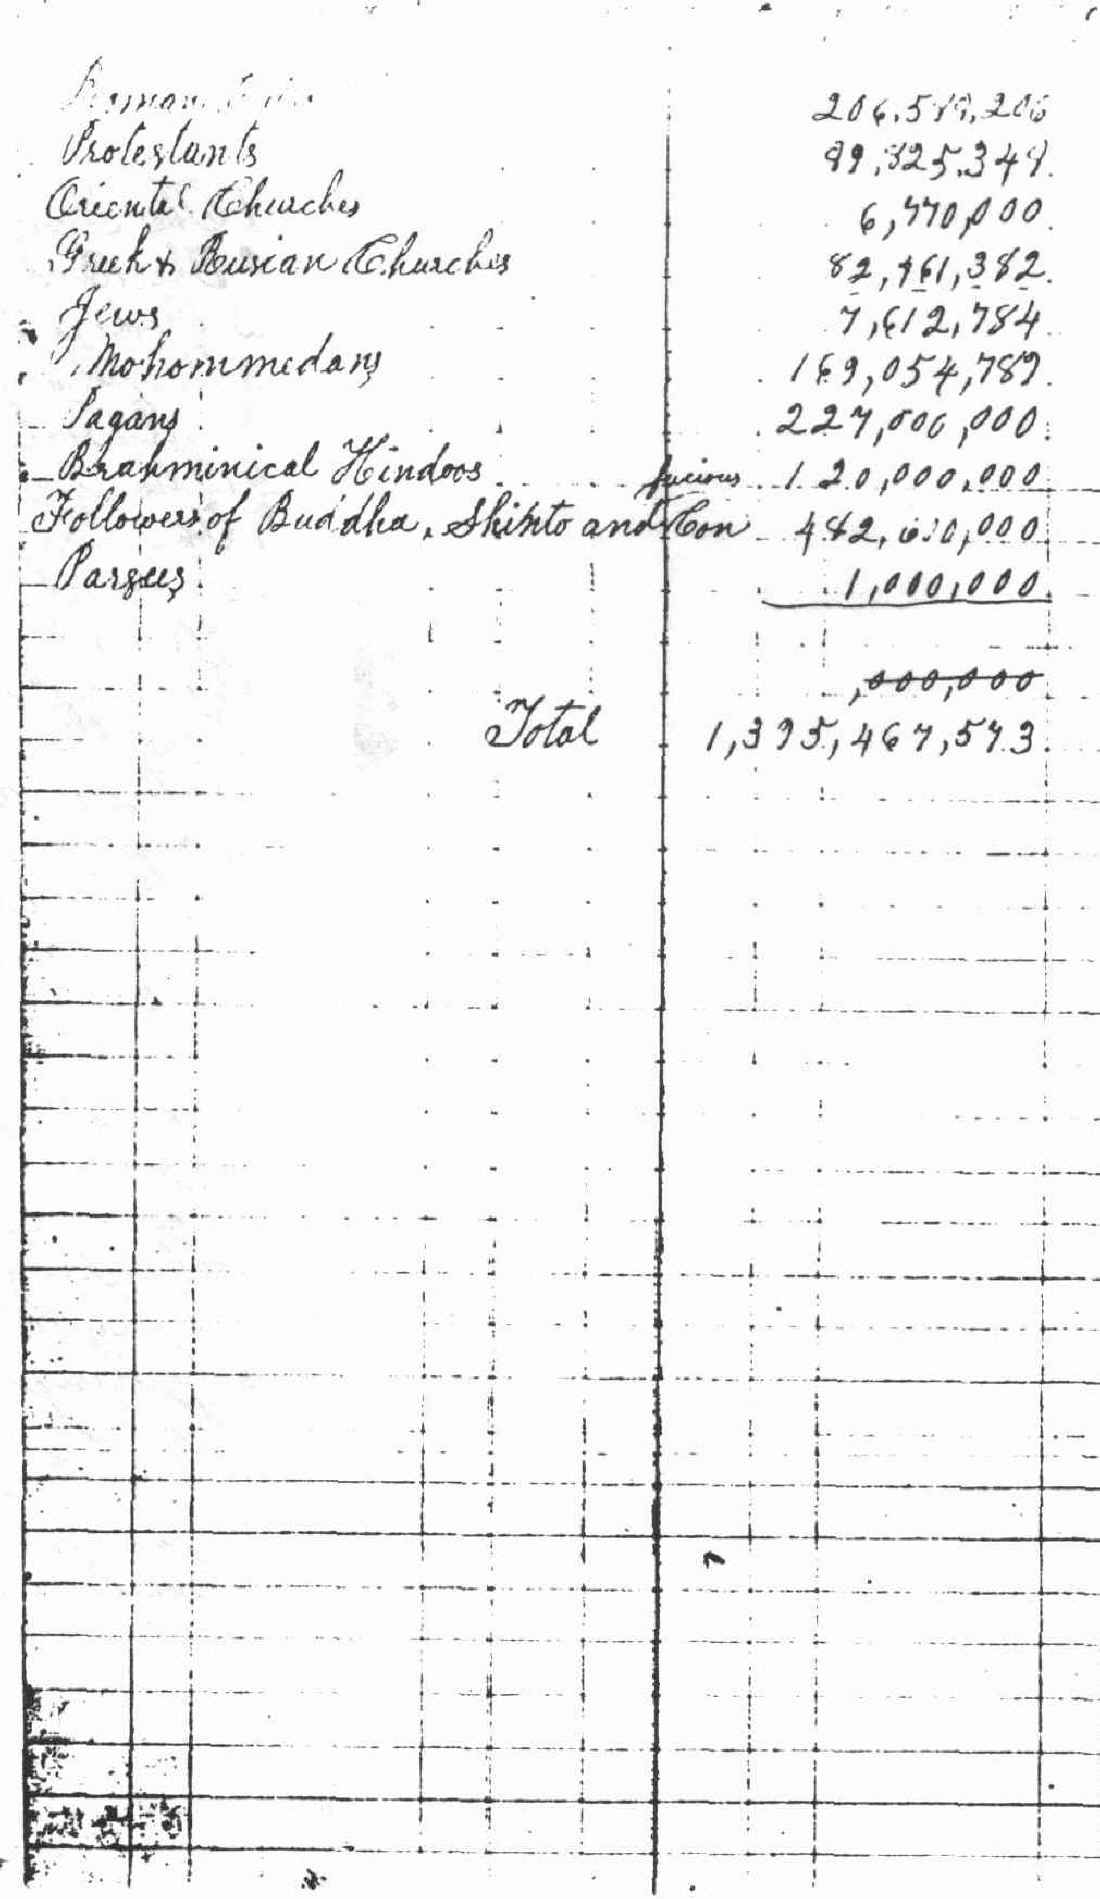 Roman
Protestants 89,825,348.
Oriental Churches 6,770,000.
Greek & Rusian Churches 82,961,382.
Jews 7,612,784.
Mohommedans 169,054,789.
Pagans 227,000,000.
Brahminical Hindoos 120,000,000
fucious
Followers of Buddha, Shinto and Con 482,600,000
Parsees 1,000,000
,000,000
Total 1,395,467,573.